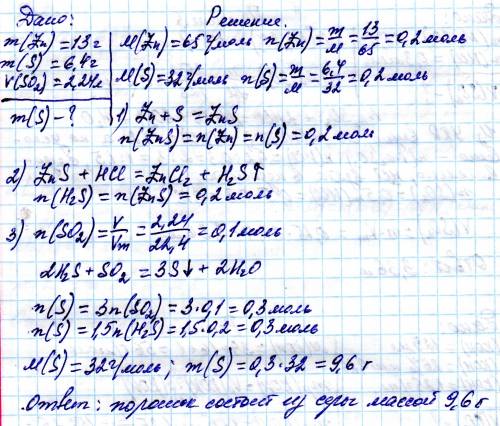 Дано:
Решение.
m(Zn)=13г
M(Zn)=65г/моль n(Zn)=m/M=13/65=0,2моль
m(S)=6,4г
V(SO₂)=2,24л
M(S)=32г/моль n(S)=m/M=6,4/32=0,2моль
m(S)-?
1) Zn+S=ZnS
n(ZnS)=n(Zn)=n(S)=0,2моль
2) ZnS+HCl=ZnCl₂+H₂S↑
n(H₂S)=n(ZnS)=0,2моль
3) n(SO₂)=V/Vm=2,24/22,4=0,1моль
2H₂S+SO₂=3S↓+2H₂O
n(S)=3n(SO₂)=3·0,1=0,3моль
n(S)=1,5n(H₂S)=1,5·0,2=0,3моль
M(S)=32г/моль; m(S)=0,3·32=9,6г
Ответ: порошок состоит из серы массой 9,6г